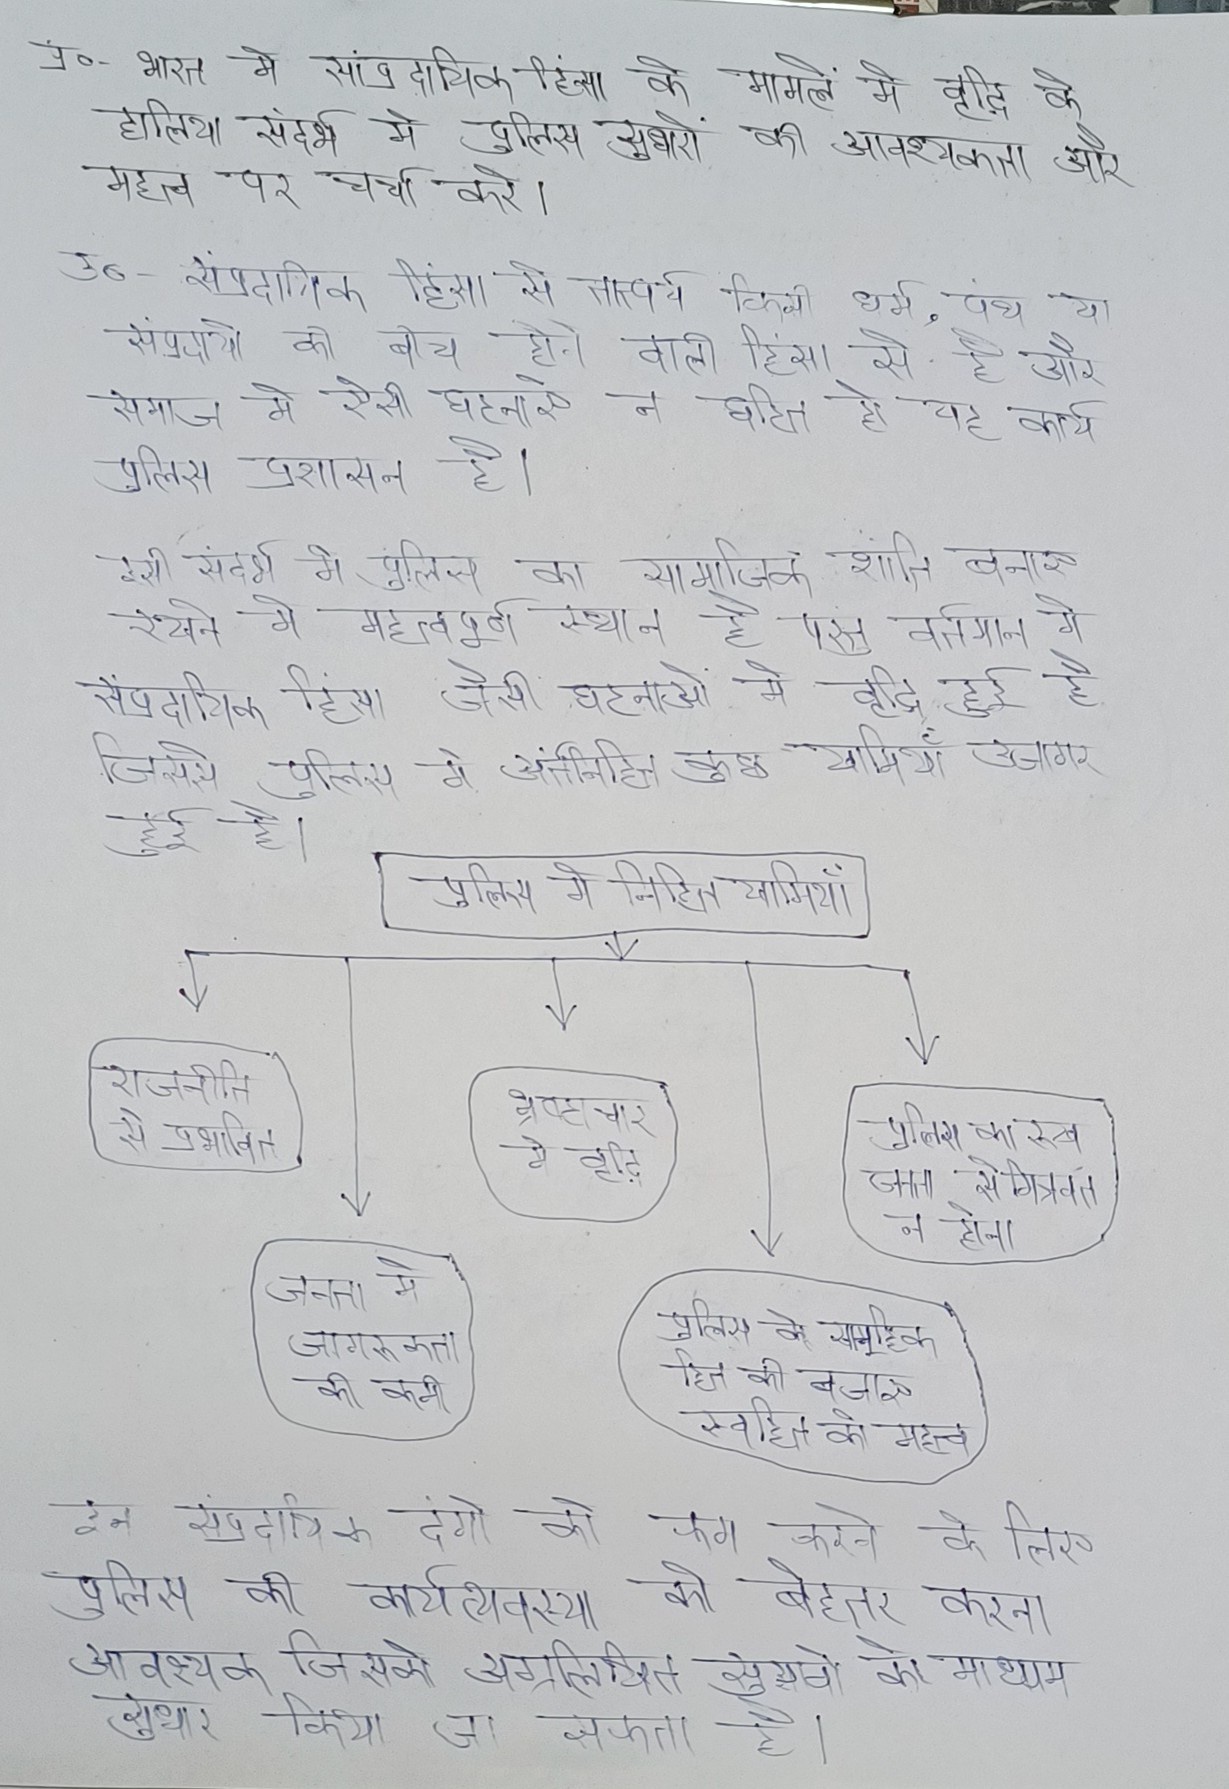 प्र०- भारत मे सांप्रदायिक हिंसा के मामलें मे वृद्धि के
हालिया संदर्भ मे पुलिस सुधारों की आवश्यकता और
महत्व पर चर्चा करे।
उ०- संप्रदायिक हिंसा से तात्पर्य किसी धर्म, पंथ या
संप्रदायो को बीच होने वाली हिंसा से है और
समाज मे ऐसी घटनाए न घटित हो यह कार्य
पुलिस प्रशासन है।
इसी संदर्भ मे पुलिस का सामाजिक शांति बनाए
रखने मे महत्वपूर्ण स्थान है परंतु वर्तमान मे
संप्रदायिक हिंसा जैसी घटनाओं मे वृद्धि हुई है
जिससे पुलिस मे अंतर्निहित कुछ खामियाँ उजागर
हुई है।
पुलिस मे निहित खामियाँ
राजनीति
से प्रभावित
भ्रष्टाचार
मे वृद्धि
पुलिस का रूख
जनता से मित्रवत
न होना
जनता मे
जागरूकता
की कमी
पुलिस के सामूहिक
हित की बजाए
स्वहित को महत्व
इन संप्रदायिक दंगो को कम करने के लिए
पुलिस की कार्यव्यवस्था को बेहतर करना
आवश्यक जिसको अग्रलिखित सुझावो के माध्यम
सुधार किया जा सकता है।